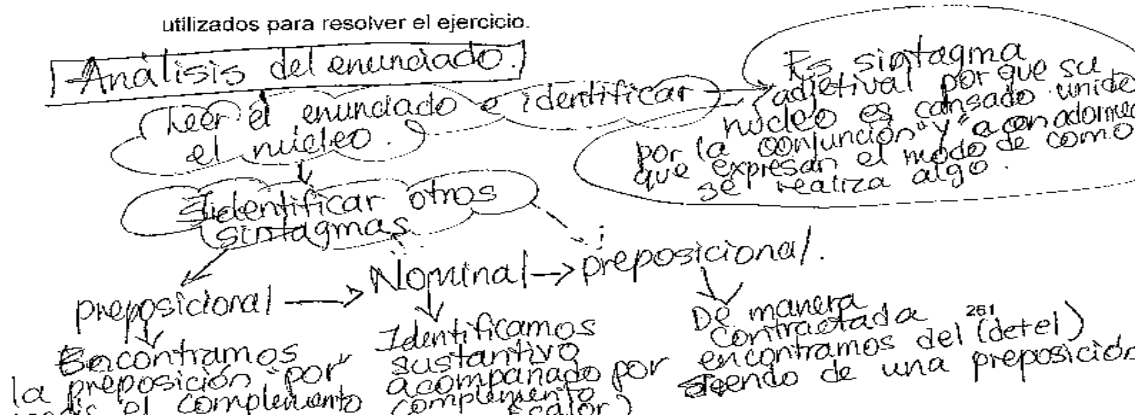 utilizados para resolver el ejercicio.
Análisis del enunciado.
Leer el enunciado e identificar
el núcleo.
Es sintagma
adjetival por que su
núcleo es cansado unido
por la conjunción "y" a
que expresan el modo de como
se realiza algo.
Identificar otros
sintagmas.
preposicional → Nominal → preposicional.
Encontramos
la preposición "por"
el complemento
Identificamos
sustantivo
acompañado por
complemento
calor)
De manera
contractada 261
encontramos del (de+el)
siendo de una preposición